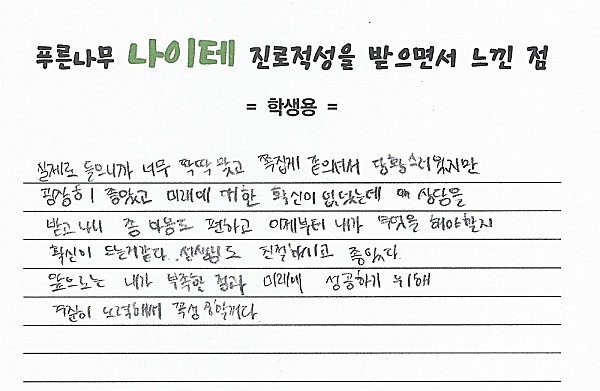 푸른나무 나이테 진로적성을 받으면서 느낀 점
= 학생용 =
실제로 들으니까 너무 딱딱 맞고 쪽집게 같으셔서 당황스러웠지만
굉장히 좋았고 미래에 대한 확신이 없었는데 상담을
받고 나니 좀 마음도 편하고 이제부터 내가 무엇을 해야할지
확신이 드는거같다. 선생님도 친절하시고 좋았다.
앞으로는 내가 부족한 점과 미래에 성공하기 위해
꾸준히 노력해서 꼭성공할꺼다.